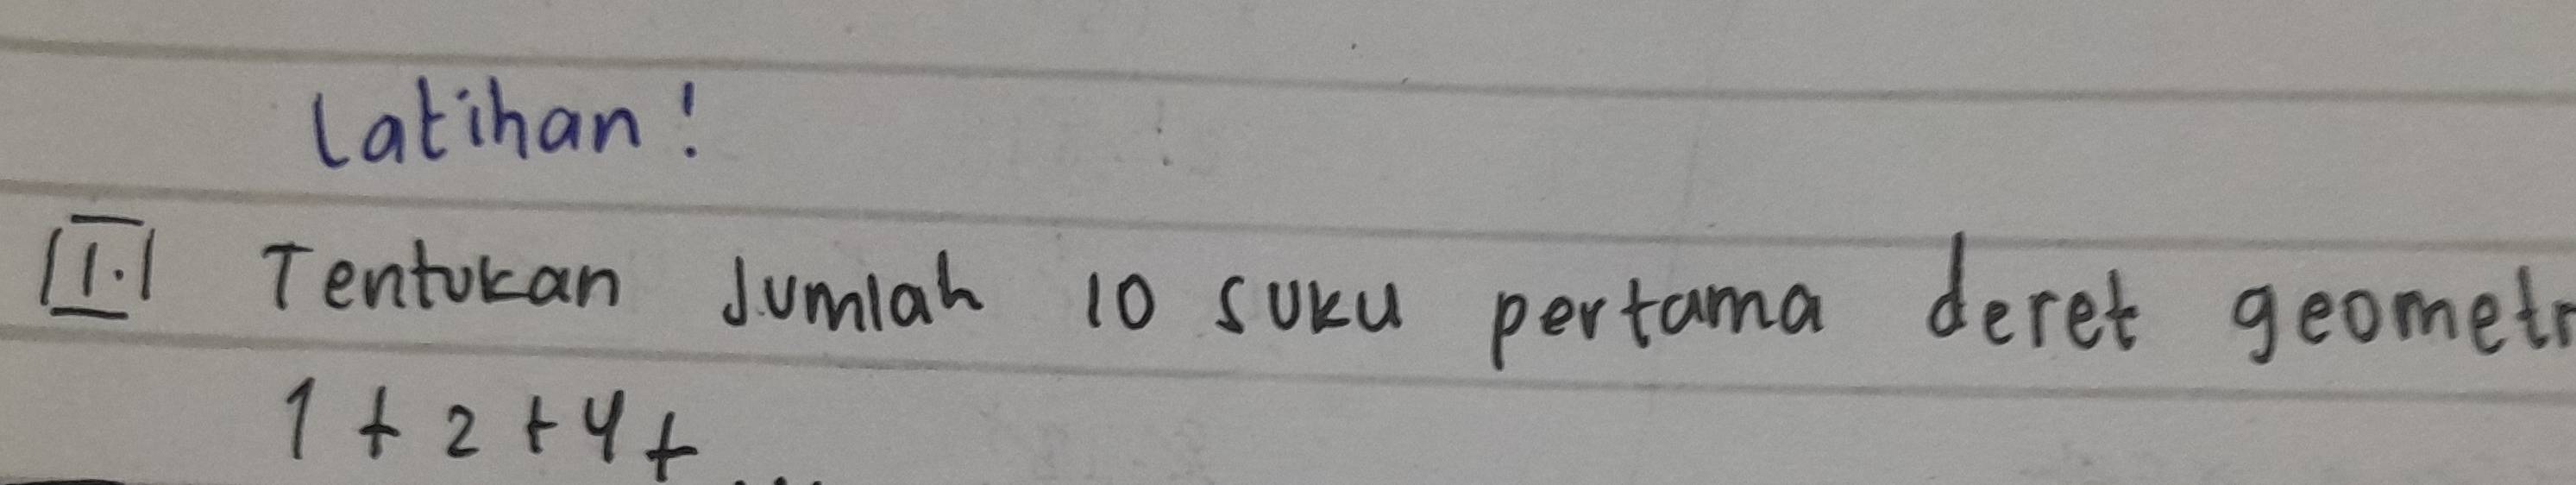 Latihan!
1. Tentukan Jumlah 10 suku pertama deret geometr
1 + 2 + 4 + ...